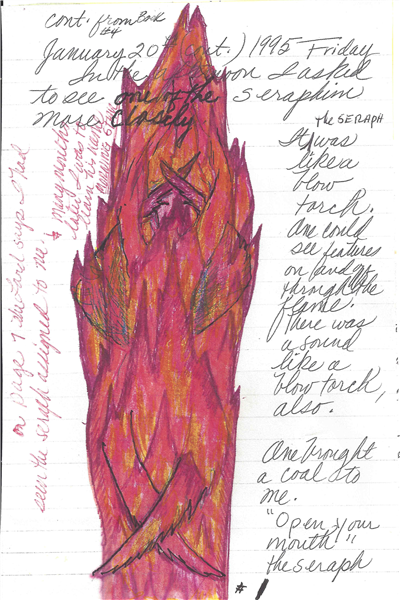 cont. from Book
#4
January 20th (cont.) 1995 Friday
In the afternoon I asked
to see one of the Seraphim
more closely
The SERAPH
It was
like a
blow
torch.
One could
see features
on and
through the
flame.
There was
a sound
like a
blow torch,
also.
One brought
a coal to
me.
"Open your
mouth"
the seraph
# 1
on page 9 the Lord says I had
seen the seraph assigned to me
& many months
before I was to
learn his name